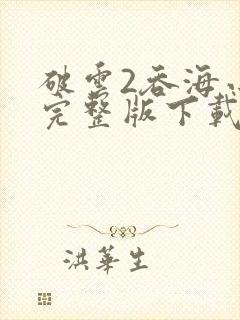 破雲2吞海
完整版下載
洪華生